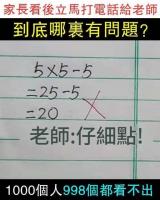 家長看後立馬打電話給老師
到底哪裏有問題?
5×5-5
=25-5
=20
老師:仔細點!
1000個人998個都看不出